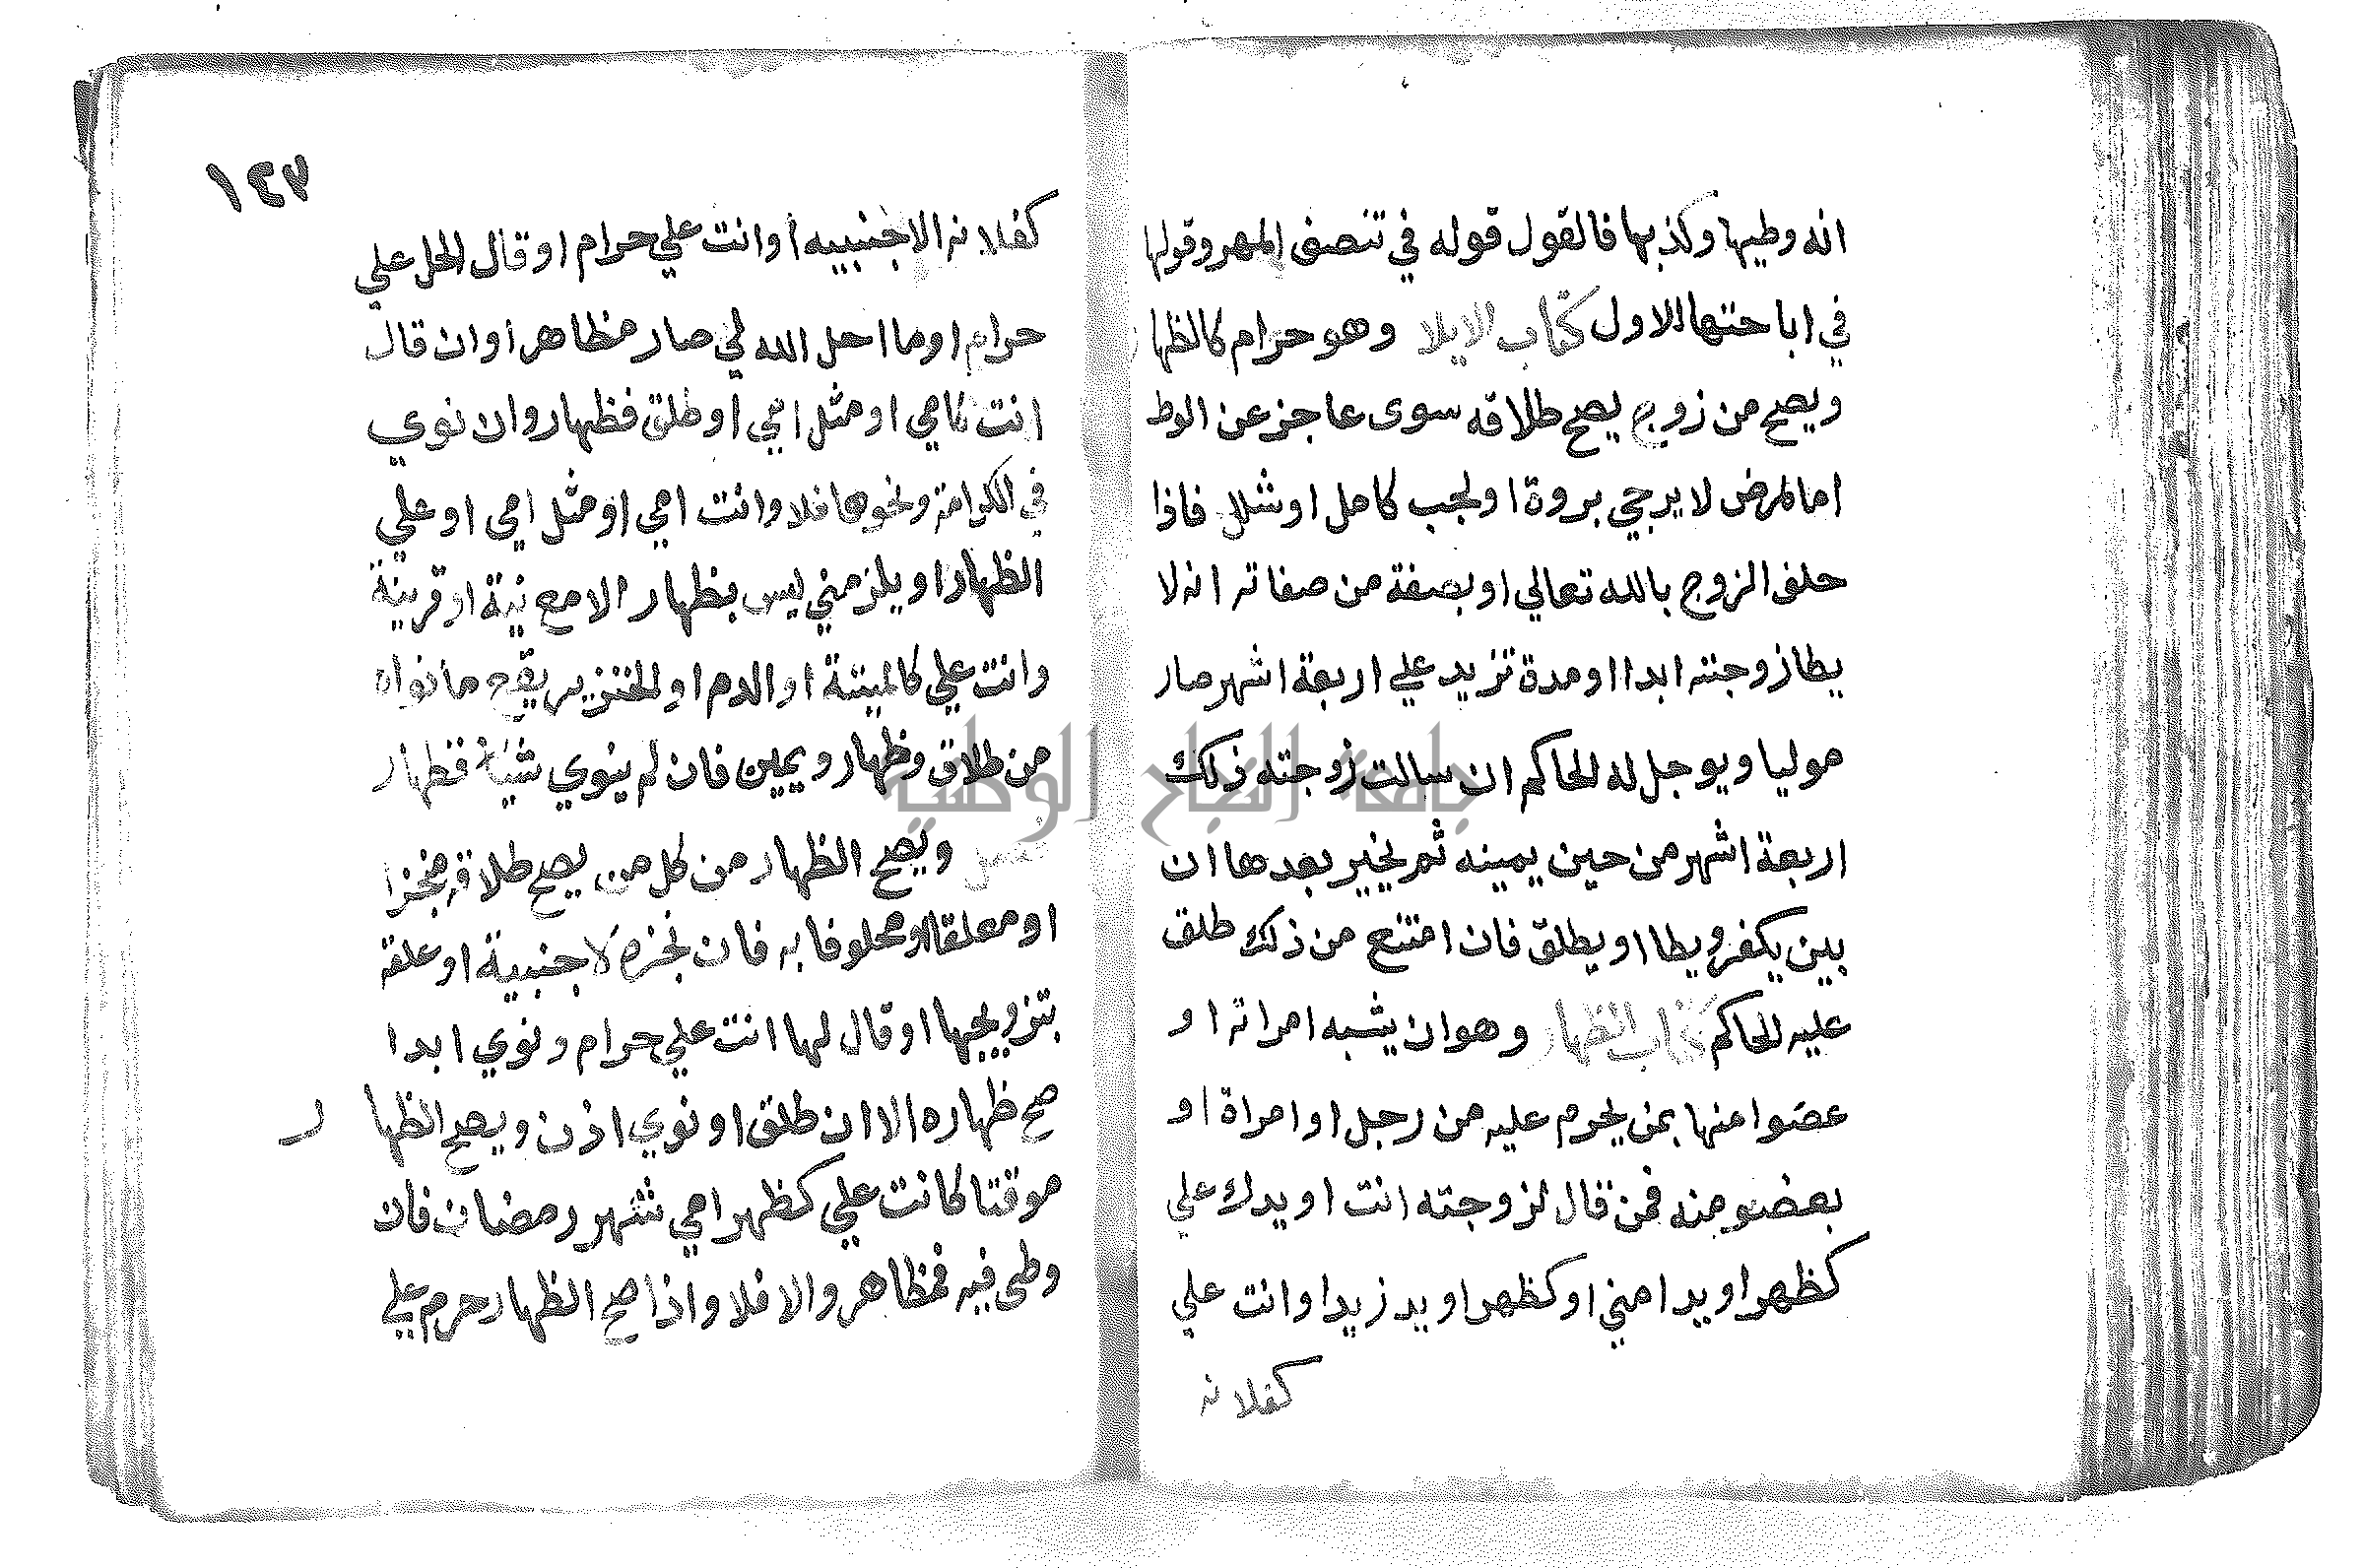 انه وطيها وكذبها فالقول قوله في تنصف المهر وقولها
في اباحتها للاول كتاب الايلا وهو حرام كالظهار
ويصح من زوج يصح طلاقه سوى عاجز عن الوط
اما لمرض لا يرجي بروة او لجب كامل او شلل فاذا
حلف الزوج بالله تعالي او بصفة من صفاته انه لا
يطا زوجته ابدا او مدة تزيد علي اربعة اشهر صار
موليا ويوجل له الحاكم ان سالت زوجته ذلك
اربعة اشهر من حين يمينه ثم يخير بعدها ان
بين يكفر ويطا او يطلق فان امتنع من ذلك طلق
عليه الحاكم كتاب الظهار وهو ان يشبه امراته او
عضوا منها بمن يحرم عليه من رجل او امراة او
بعضو منه فمن قال لزوجته انت او يدك علي
كظهر او يد امني او كظهر او يد زيد او انت علي
كفلانه
١٢٣
كفلانه الاجنبيه او انت علي حرام او قال الحل علي
حرام او ما احل الله لي صار مظاهر او ان قال
انت كامي او مثل امي او طلق فظهار وان نوي
في الكرامة ونحوها فلا وانت امي او مثل امي او علي
الظهار او يلزمني ليس بظهار الا مع نية او قرينة
وانت علي كالميتة او الدم او الخنزير يقع ما نواه
من طلاق وظهار ويمين فان لم ينوي شيا فظهار
فصل ويصح الظهار من كل من يصح طلاقه منجزا
او معلقا او محلوفا به فان نجزه لاجنبية او علقه
بتزويجها او قال لها انت علي حرام ونوي ابدا
صح ظهاره الا ان طلق او نوي اذن ويصح الظهار
موقتا كانت علي كظهر امي شهر رمضان فان
وطى فيه فمظاهر والا فلا واذا صح الظهار حرم علي
جامعة النجاح الوطنية